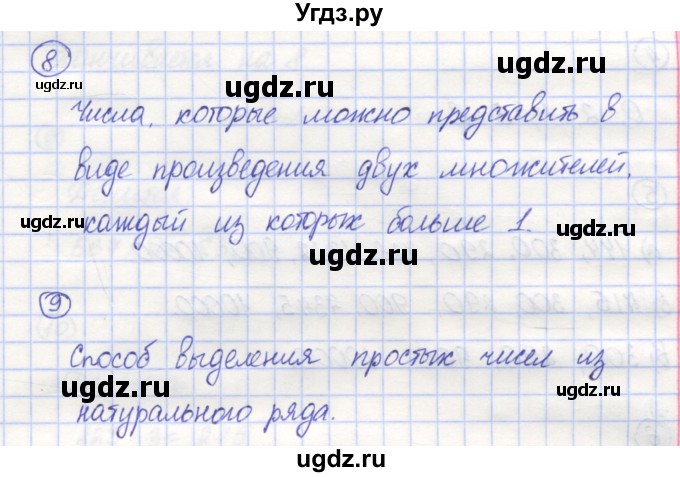 Угдз.ру
8
Числа, которые можно представить в
виде произведения двух множителей,
каждый из которых больше 1.
9
Способ выделения простых чисел из
натурального ряда.
ugdz.ru
ugdz.ru
ugdz.ru
ugdz.ru
ugdz.ru
ugdz.ru
ugdz.ru
ugdz.ru
ugdz.ru
ugdz.ru
ugdz.ru
ugdz.ru
ugdz.ru